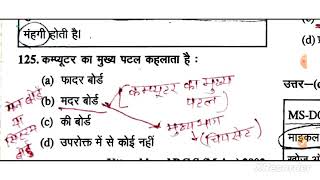 मंहगी होती है।
125. कम्प्यूटर का मुख्य पटल कहलाता है :
(a) फादर बोर्ड
(b) मदर बोर्ड
(c) की बोर्ड
(d) उपरोक्त में से कोई नहीं
(कम्प्यूटर का मुख्य
पटल)
मुख्य भाग
(चिपसेट)
मेन बोर्ड
या
सिस्टम
बोर्ड
(d)
उत्तर–(
MS-DO
माइकल